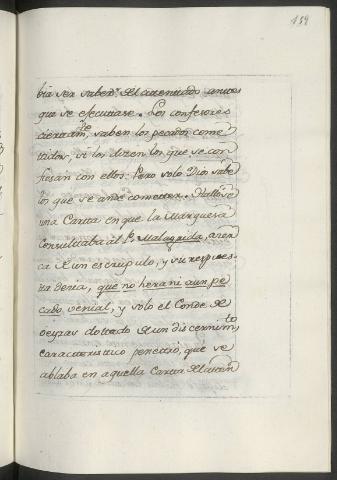 159
bia ser sabedr. del attentado antes
que se efecutase. Los confesores
ciertamte. saben los pecados come
tidos, si los dizen los que se con
fiesan con ellos: Pero solo Dios sabe
los que se ande cometter. Hallose
una Cartta en que la Marquesa
consulttaba al Pe. Malagrida, azer
ca de un escrupulo, y su respues
ta dezia, que no hera ni aun pe
cado venial, y solo el Conde de
Oeyras dottado de un discernimto.
caractteristico penettró, que se
ablaba en aquella Cartta del